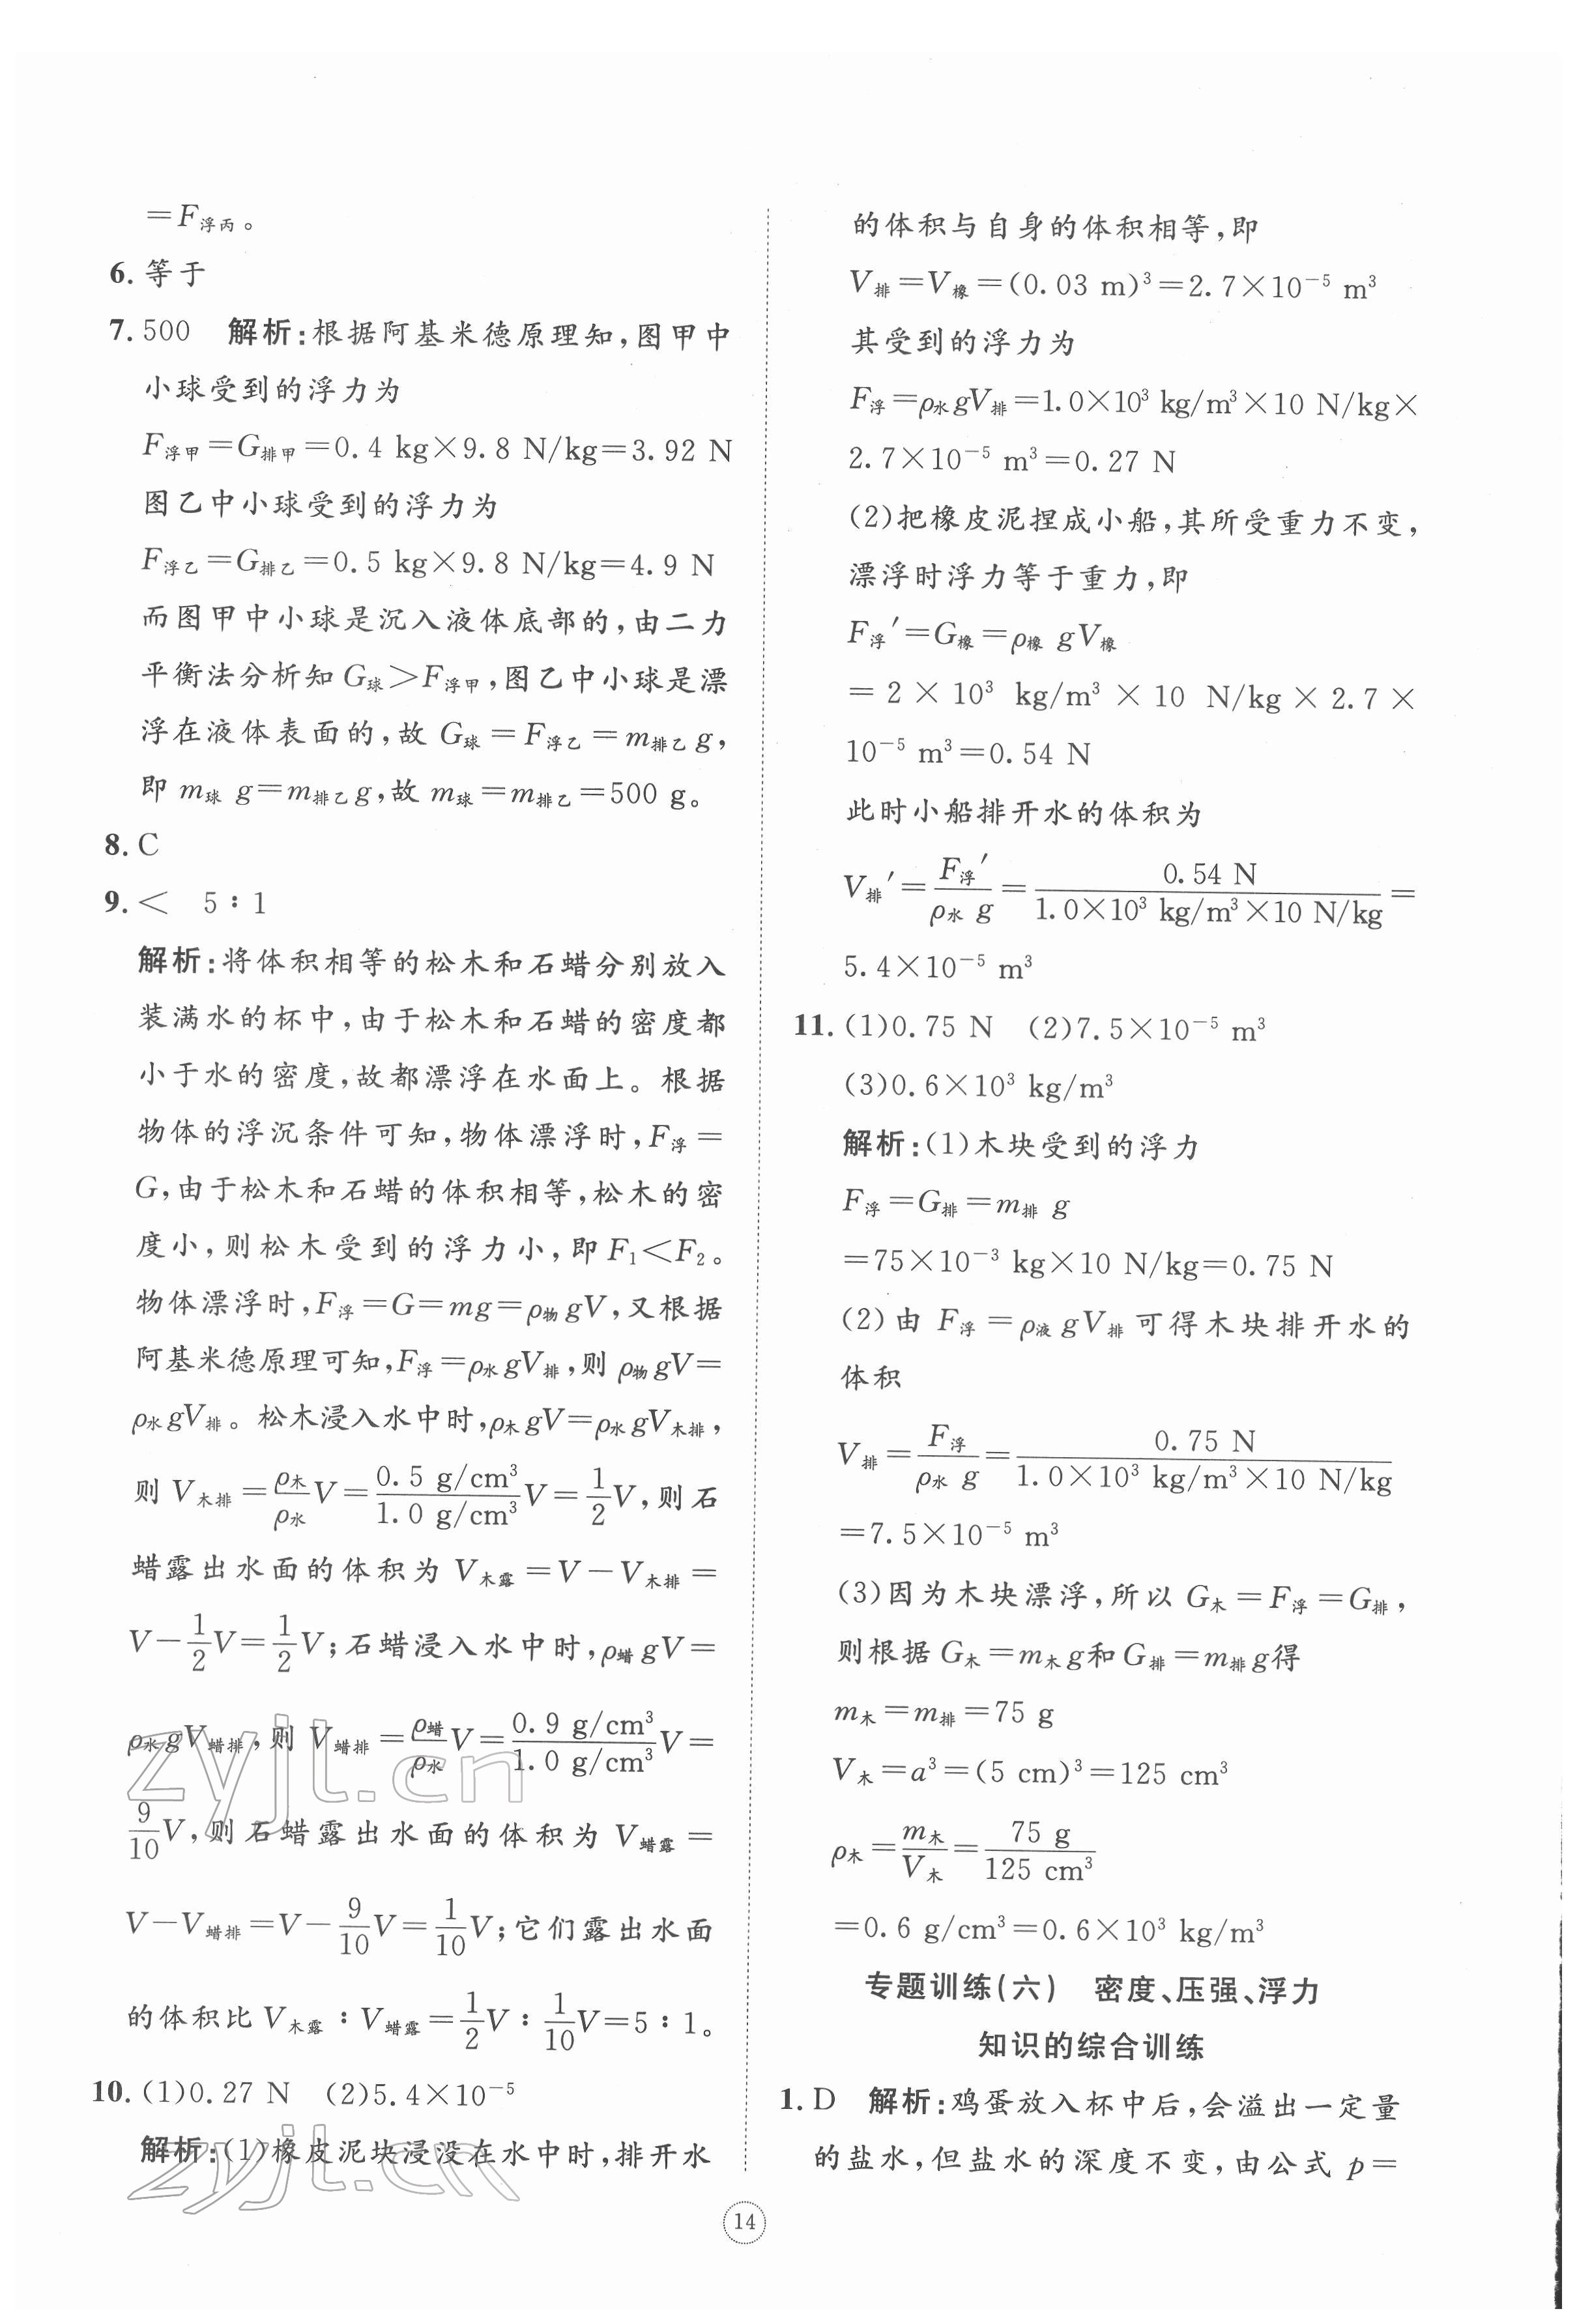 =F浮丙。
6. 等于
7. 500 解析:根据阿基米德原理知,图甲中
小球受到的浮力为
F浮甲=G排甲=0.4 kg×9.8 N/kg=3.92 N
图乙中小球受到的浮力为
F浮乙=G排乙=0.5 kg×9.8 N/kg=4.9 N
而图甲中小球是沉入液体底部的,由二力
平衡法分析知 G球>F浮甲,图乙中小球是漂
浮在液体表面的,故 G球=F浮乙=m排乙g,
即 m球 g=m排乙g,故 m球=m排乙=500 g。
8. C
9. < 5∶1
解析:将体积相等的松木和石蜡分别放入
装满水的杯中,由于松木和石蜡的密度都
小于水的密度,故都漂浮在水面上。根据
物体的浮沉条件可知,物体漂浮时,F浮=
G,由于松木和石蜡的体积相等,松木的密
度小,则松木受到的浮力小,即 F₁<F₂。
物体漂浮时,F浮=G=mg=ρ物gV,又根据
阿基米德原理可知,F浮=ρ水gV排,则 ρ物gV=
ρ水gV排。松木浸入水中时,ρ木gV=ρ水gV木排,
则 V木排=ρ木/ρ水 V=0.5 g/cm³/1.0 g/cm³ V=1/2 V,则石
蜡露出水面的体积为 V木露=V-V木排=
V-1/2 V=1/2 V;石蜡浸入水中时,ρ蜡gV=
ρ水gV蜡排,则 V蜡排=ρ蜡/ρ水 V=0.9 g/cm³/1.0 g/cm³ V=
9/10 V,则石蜡露出水面的体积为 V蜡露=
V-V蜡排=V-9/10 V=1/10 V;它们露出水面
的体积比 V木露∶V蜡露=1/2 V∶1/10 V=5∶1。
10. (1)0.27 N (2)5.4×10⁻⁵
解析:(1)橡皮泥块浸没在水中时,排开水
的体积与自身的体积相等,即
V排=V橡=(0.03 m)³=2.7×10⁻⁵ m³
其受到的浮力为
F浮=ρ水gV排=1.0×10³ kg/m³×10 N/kg×
2.7×10⁻⁵ m³=0.27 N
(2)把橡皮泥捏成小船,其所受重力不变,
漂浮时浮力等于重力,即
F浮′=G橡=ρ橡 gV橡
=2×10³ kg/m³×10 N/kg×2.7×
10⁻⁵ m³=0.54 N
此时小船排开水的体积为
V排′=F浮′/ρ水 g=0.54 N/1.0×10³ kg/m³×10 N/kg=
5.4×10⁻⁵ m³
11. (1)0.75 N (2)7.5×10⁻⁵ m³
(3)0.6×10³ kg/m³
解析:(1)木块受到的浮力
F浮=G排=m排 g
=75×10⁻³ kg×10 N/kg=0.75 N
(2)由 F浮=ρ液gV排可得木块排开水的
体积
V排=F浮/ρ水 g=0.75 N/1.0×10³ kg/m³×10 N/kg
=7.5×10⁻⁵ m³
(3)因为木块漂浮,所以 G木=F浮=G排,
则根据 G木=m木g和 G排=m排g得
m木=m排=75 g
V木=a³=(5 cm)³=125 cm³
ρ木=m木/V木=75 g/125 cm³
=0.6 g/cm³=0.6×10³ kg/m³
专题训练(六) 密度、压强、浮力
知识的综合训练
1. D 解析:鸡蛋放入杯中后,会溢出一定量
的盐水,但盐水的深度不变,由公式 p=
14
zyjl.cn
zyjl.cn